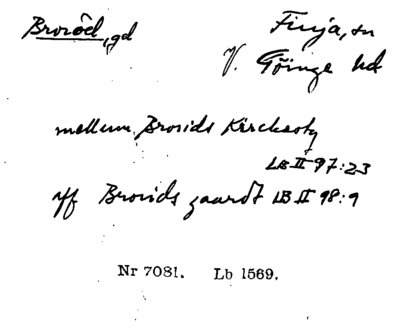 Broröd, gd Finja, sn
V. Göinge hd
mellem Brorids Kirckesty
LB II 97:23
yff Brorids gaardt LB II 98:9
Nr 7081. Lb 1569.